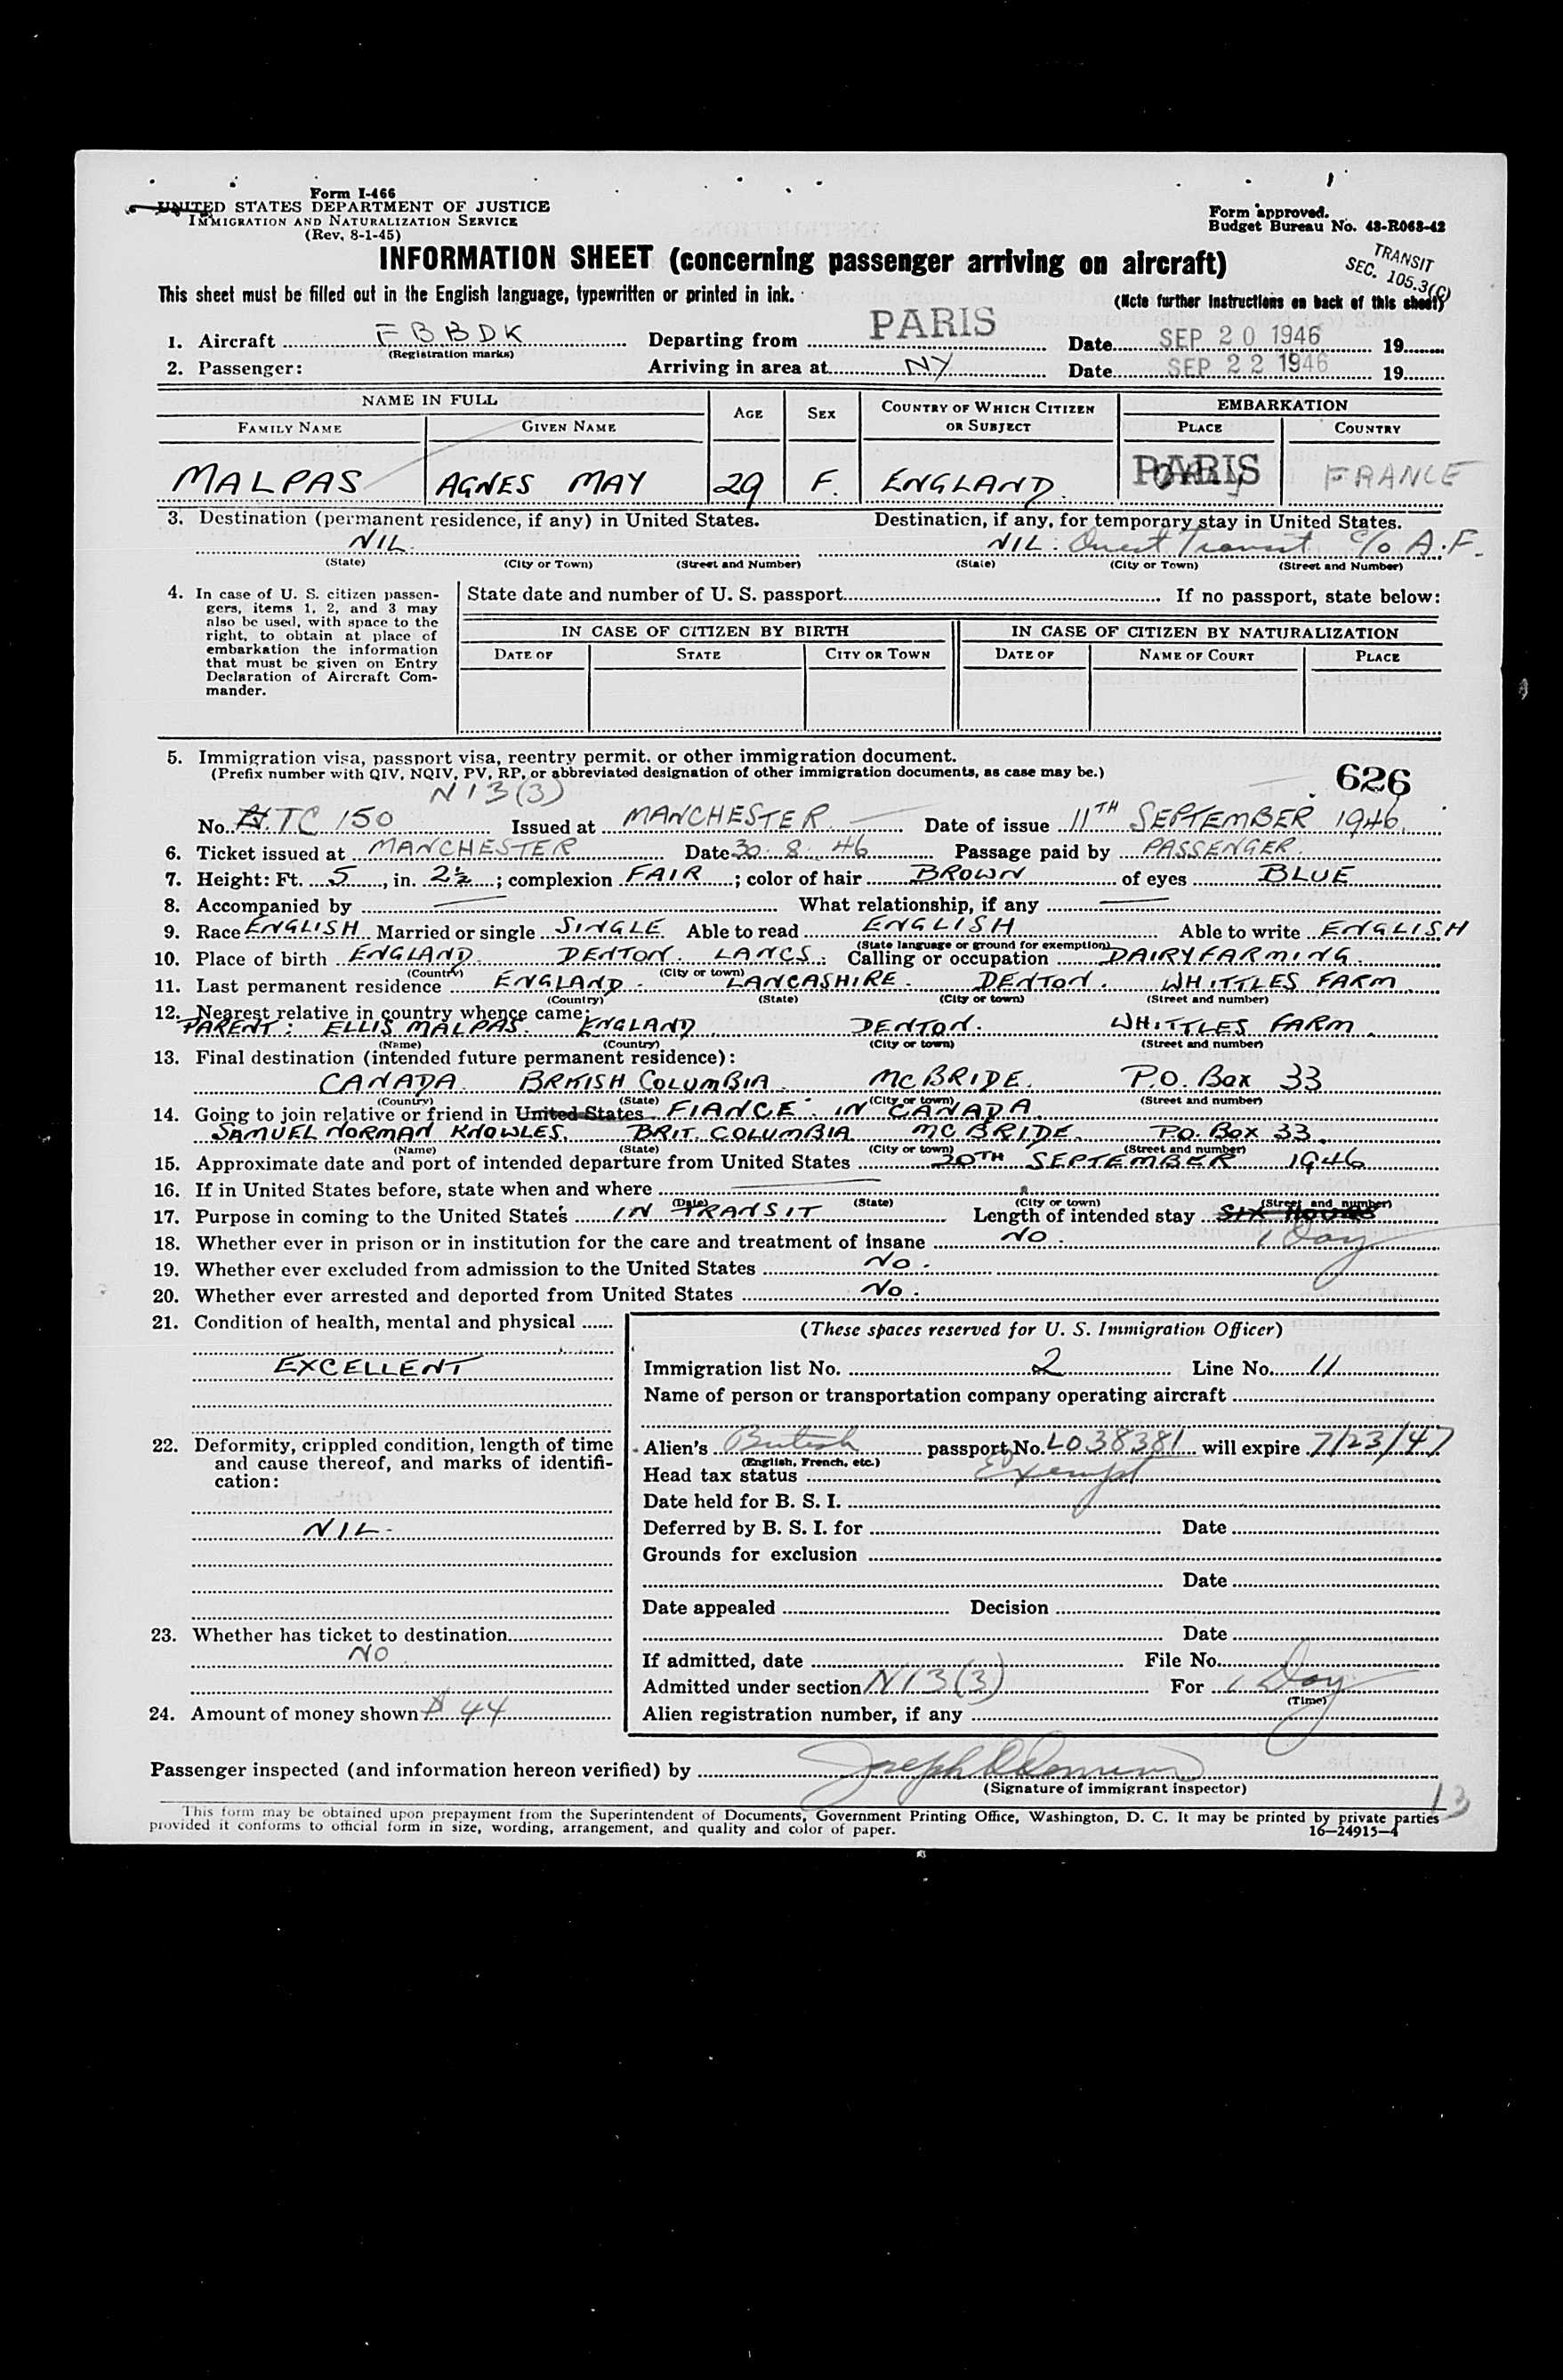 Form I-466
UNITED STATES DEPARTMENT OF JUSTICE
IMMIGRATION AND NATURALIZATION SERVICE
(Rev. 8-1-45)
Form approved.
Budget Bureau No. 43-R063-42
TRANSIT
SEC. 105.3(C)
INFORMATION SHEET (concerning passenger arriving on aircraft)
This sheet must be filled out in the English language, typewritten or printed in ink.
(Note further instructions on back of this sheet)
1. Aircraft FBBDK Departing from PARIS Date SEP 20 1946 19
(Registration marks)
2. Passenger: Arriving in area at NY Date SEP 22 1946 19
NAME IN FULL AGE SEX COUNTRY OF WHICH CITIZEN OR SUBJECT EMBARKATION
FAMILY NAME GIVEN NAME PLACE COUNTRY
MALPAS AGNES MAY 29 F. ENGLAND. PARIS FRANCE
3. Destination (permanent residence, if any) in United States. Destination, if any, for temporary stay in United States.
NIL. NIL. Transit C/O A.F.
(State) (City or Town) (Street and Number) (State) (City or Town) (Street and Number)
4. In case of U. S. citizen passen-
gers, items 1, 2, and 3 may
also be used, with space to the
right, to obtain at place of
embarkation the information
that must be given on Entry
Declaration of Aircraft Com-
mander.
State date and number of U. S. passport If no passport, state below:
IN CASE OF CITIZEN BY BIRTH IN CASE OF CITIZEN BY NATURALIZATION
DATE OF STATE CITY OR TOWN DATE OF NAME OF COURT PLACE
5. Immigration visa, passport visa, reentry permit, or other immigration document.
(Prefix number with QIV, NQIV, PV, RP, or abbreviated designation of other immigration documents, as case may be.)
626
N13(3)
No. TC 150 Issued at MANCHESTER Date of issue 11TH SEPTEMBER 1946.
6. Ticket issued at MANCHESTER Date 30. 8. 46 Passage paid by PASSENGER.
7. Height: Ft. 5, in. 2½; complexion FAIR; color of hair BROWN of eyes BLUE
8. Accompanied by What relationship, if any
9. Race ENGLISH Married or single SINGLE. Able to read ENGLISH Able to write ENGLISH
(State language or ground for exemption)
10. Place of birth ENGLAND. DENTON. LANCS. Calling or occupation DAIRYFARMING.
(Country) (City or town)
11. Last permanent residence ENGLAND. LANCASHIRE. DENTON. WHITTLES FARM.
(Country) (State) (City or town) (Street and number)
12. Nearest relative in country whence came:
PARENT: ELLIS MALPAS. ENGLAND DENTON. WHITTLES FARM.
(Name) (Country) (City or town) (Street and number)
13. Final destination (intended future permanent residence):
CANADA. BRITISH COLUMBIA. MCBRIDE. P.O. BOX 33
(Country) (State) (City or town) (Street and number)
14. Going to join relative or friend in United States FIANCE. IN CANADA.
SAMUEL NORMAN KNOWLES. BRIT. COLUMBIA MCBRIDE. P.O. BOX 33.
(Name) (State) (City or town) (Street and number)
15. Approximate date and port of intended departure from United States 20TH SEPTEMBER 1946
16. If in United States before, state when and where
(Date) (State) (City or town) (Street and number)
17. Purpose in coming to the United States IN TRANSIT Length of intended stay SIX HOURS
1 Day
18. Whether ever in prison or in institution for the care and treatment of insane NO.
19. Whether ever excluded from admission to the United States NO.
20. Whether ever arrested and deported from United States NO.
21. Condition of health, mental and physical
EXCELLENT
22. Deformity, crippled condition, length of time
and cause thereof, and marks of identifi-
cation:
NIL.
23. Whether has ticket to destination
NO
24. Amount of money shown $ 44
(These spaces reserved for U. S. Immigration Officer)
Immigration list No. 2 Line No. 11
Name of person or transportation company operating aircraft
Alien's British passport No. LO38381 will expire 7/23/47
(English, French, etc.)
Head tax status Exempt
Date held for B. S. I.
Deferred by B. S. I. for Date
Grounds for exclusion
Date
Date appealed Decision
Date
If admitted, date File No.
Admitted under section N13(3) For 1 Day
(Time)
Alien registration number, if any
Passenger inspected (and information hereon verified) by Joseph
(Signature of immigrant inspector)
13
This form may be obtained upon prepayment from the Superintendent of Documents, Government Printing Office, Washington, D. C. It may be printed by private parties
provided it conforms to official form in size, wording, arrangement, and quality and color of paper.
16—24915-4